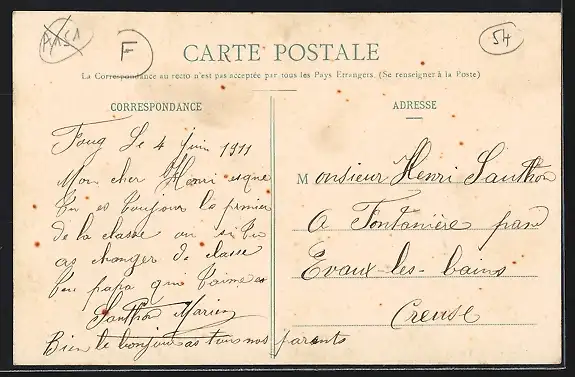 A151
F
54
CARTE POSTALE
La Correspondance au recto n'est pas acceptée par tous les Pays Etrangers. (Se renseigner à la Poste)
CORRESPONDANCE
Foug Le 4 juin 1911
Mon cher Henri esque
tu es toujour le premier
de la classe ou si tu
as changer de classe
ton papa qui t'aime
Santhon Marien
Bien le bonjour as tous nos parents
ADRESSE
Monsieur Henri Santhon
A Fontanière par
Evaux-les-bains
Creuse